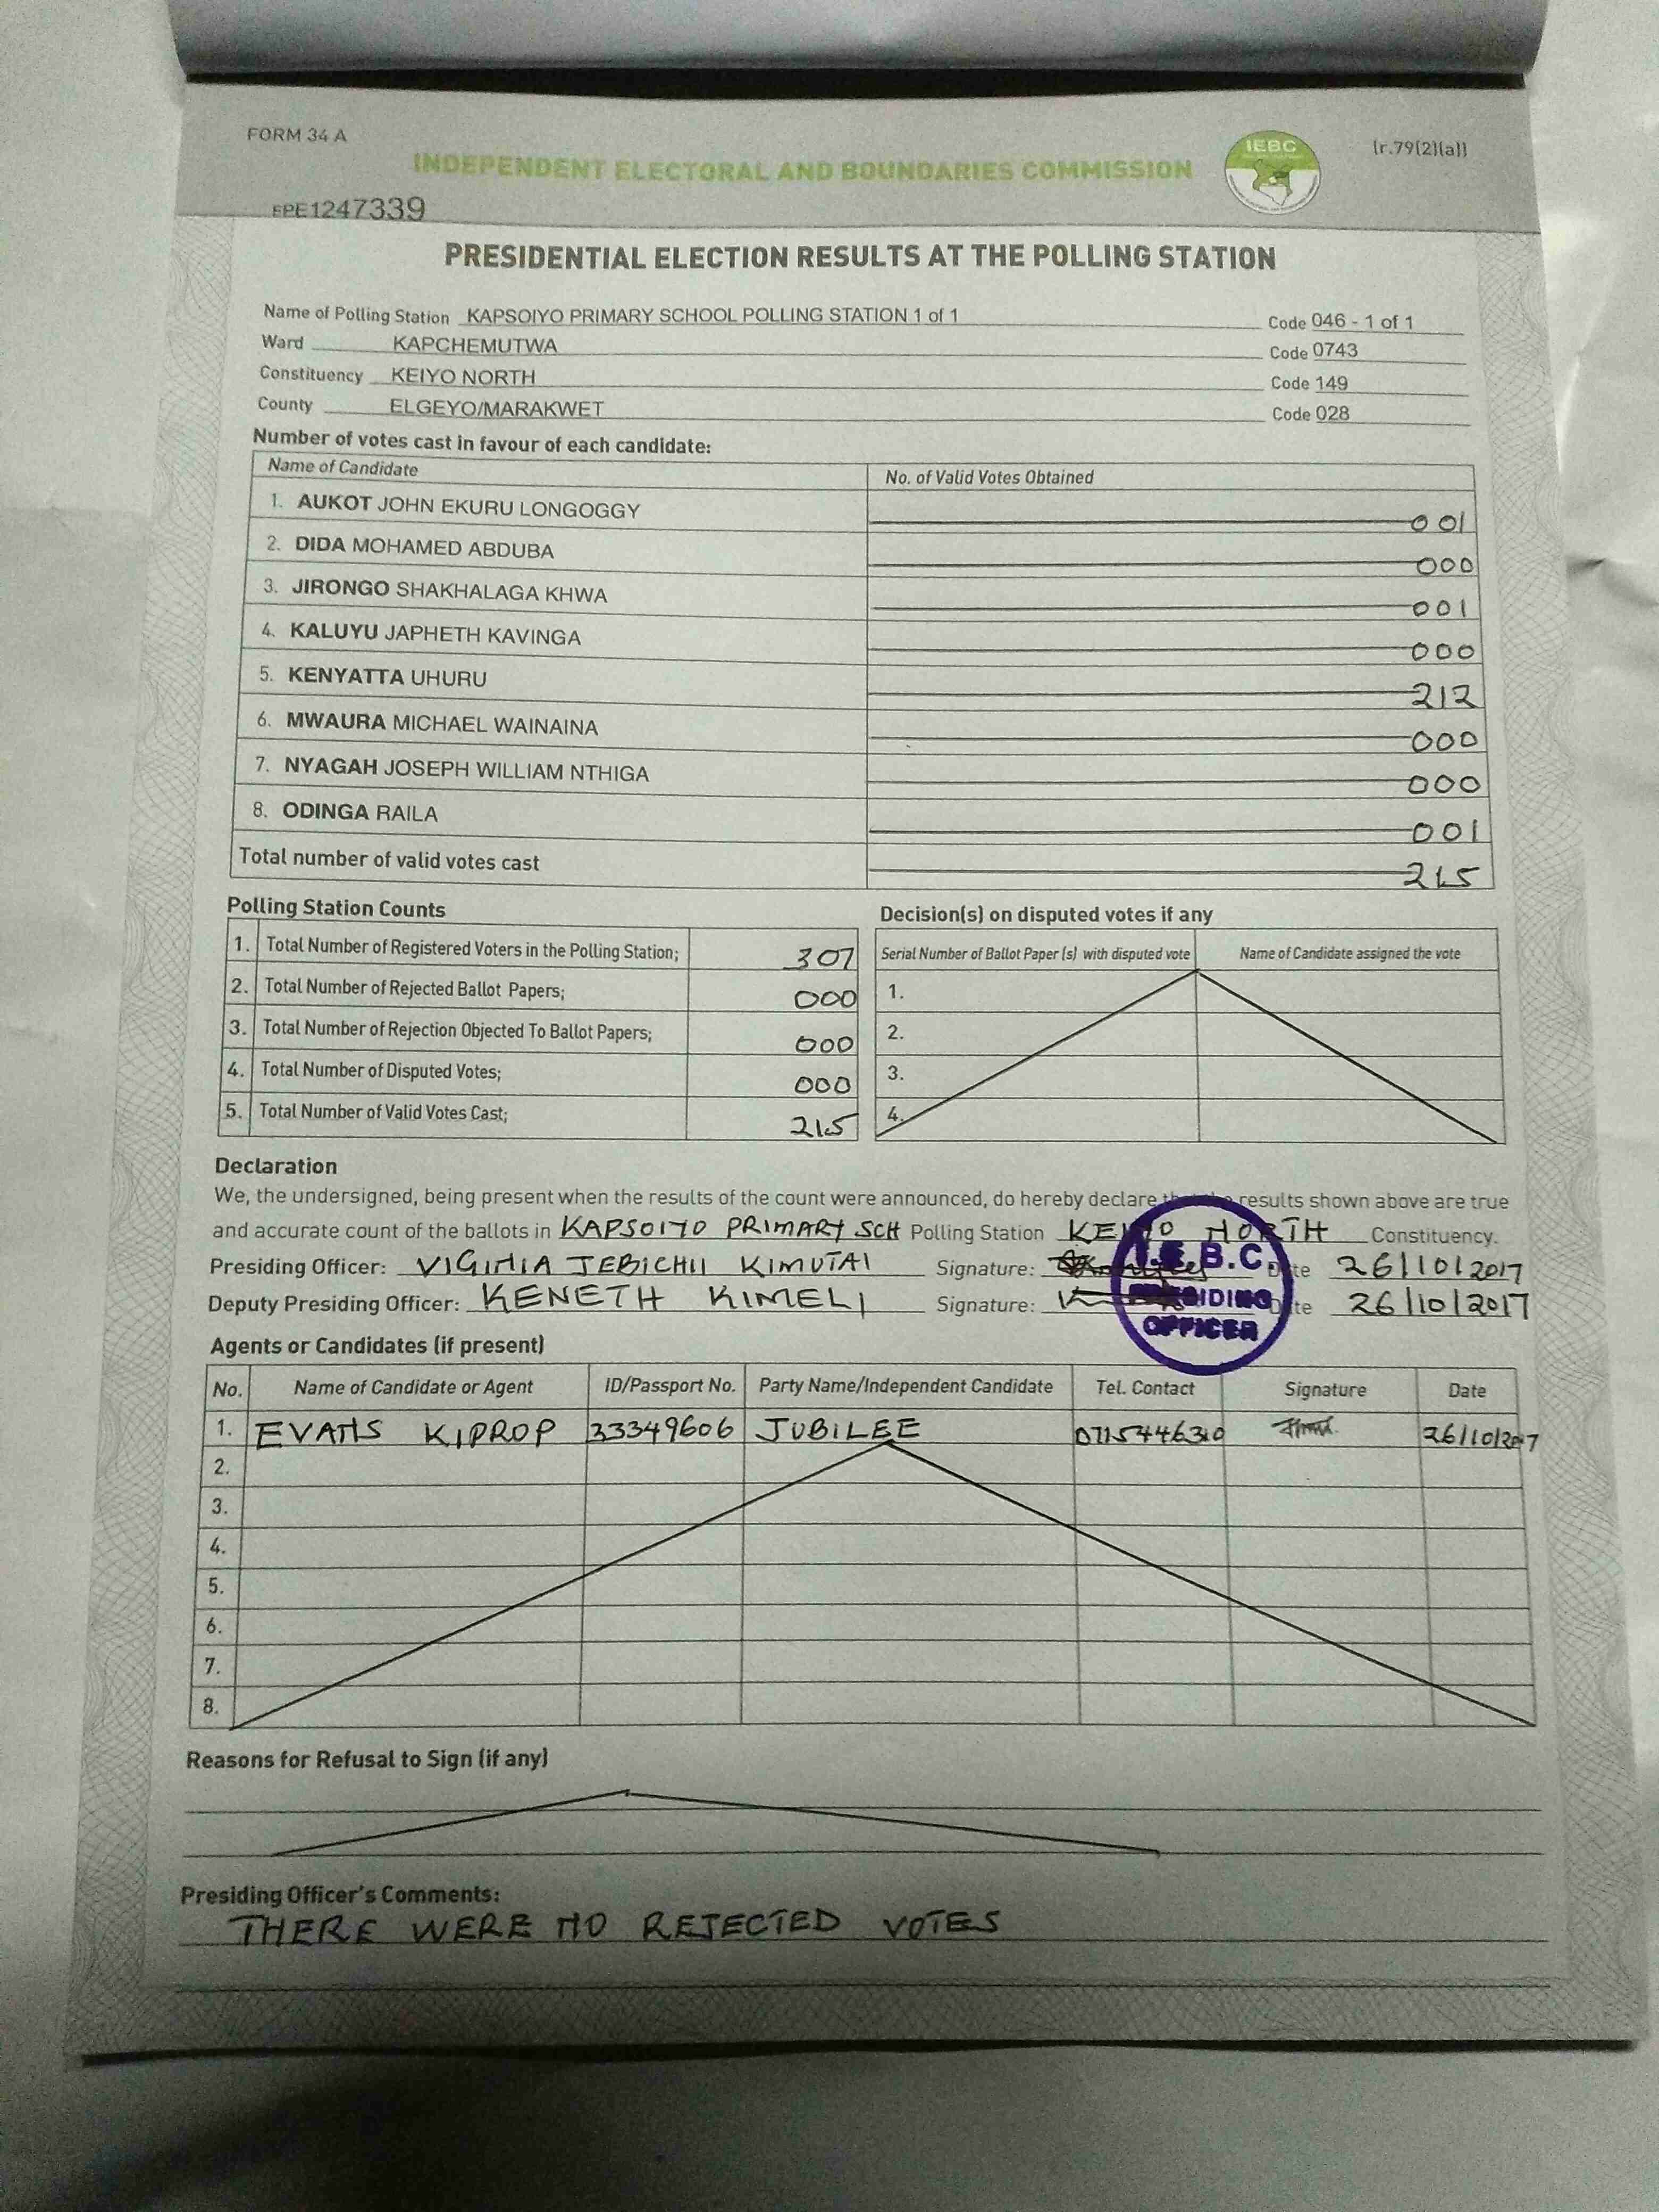 FORM 34 A
IEBC
[r.79(2)(a)]
INDEPENDENT ELECTORAL AND BOUNDARIES COMMISSION
EPE1247339
PRESIDENTIAL ELECTION RESULTS AT THE POLLING STATION
Name of Polling Station KAPSOIYO PRIMARY SCHOOL POLLING STATION 1 of 1 Code 046 - 1 of 1
Ward KAPCHEMUTWA Code 0743
Constituency KEIYO NORTH Code 149
County ELGEYO/MARAKWET Code 028
Number of votes cast in favour of each candidate:
Name of Candidate No. of Valid Votes Obtained
1. AUKOT JOHN EKURU LONGOGGY 001
2. DIDA MOHAMED ABDUBA 000
3. JIRONGO SHAKHALAGA KHWA 001
4. KALUYU JAPHETH KAVINGA 000
5. KENYATTA UHURU 212
6. MWAURA MICHAEL WAINAINA 000
7. NYAGAH JOSEPH WILLIAM NTHIGA 000
8. ODINGA RAILA 001
Total number of valid votes cast 215
Polling Station Counts
1. Total Number of Registered Voters in the Polling Station; 307
2. Total Number of Rejected Ballot Papers; 000
3. Total Number of Rejection Objected To Ballot Papers; 000
4. Total Number of Disputed Votes; 000
5. Total Number of Valid Votes Cast; 215
Decision(s) on disputed votes if any
Serial Number of Ballot Paper (s) with disputed vote Name of Candidate assigned the vote
1.
2.
3.
4.
Declaration
We, the undersigned, being present when the results of the count were announced, do hereby declare that the results shown above are true
and accurate count of the ballots in KAPSOIYO PRIMARY SCH Polling Station KEIYO NORTH Constituency.
Presiding Officer: VIGINIA JEBICHII KIMUTAI Signature: Date 26/10/2017
Deputy Presiding Officer: KENETH KIMELI Signature: Date 26/10/2017
I.E.B.C.
PRESIDING
OFFICER
Agents or Candidates (if present)
No. Name of Candidate or Agent ID/Passport No. Party Name/Independent Candidate Tel. Contact Signature Date
1. EVANS KIPROP 33349606 JUBILEE 0715446310 26/10/2017
2.
3.
4.
5.
6.
7.
8.
Reasons for Refusal to Sign (if any)
Presiding Officer's Comments:
THERE WERE NO REJECTED VOTES